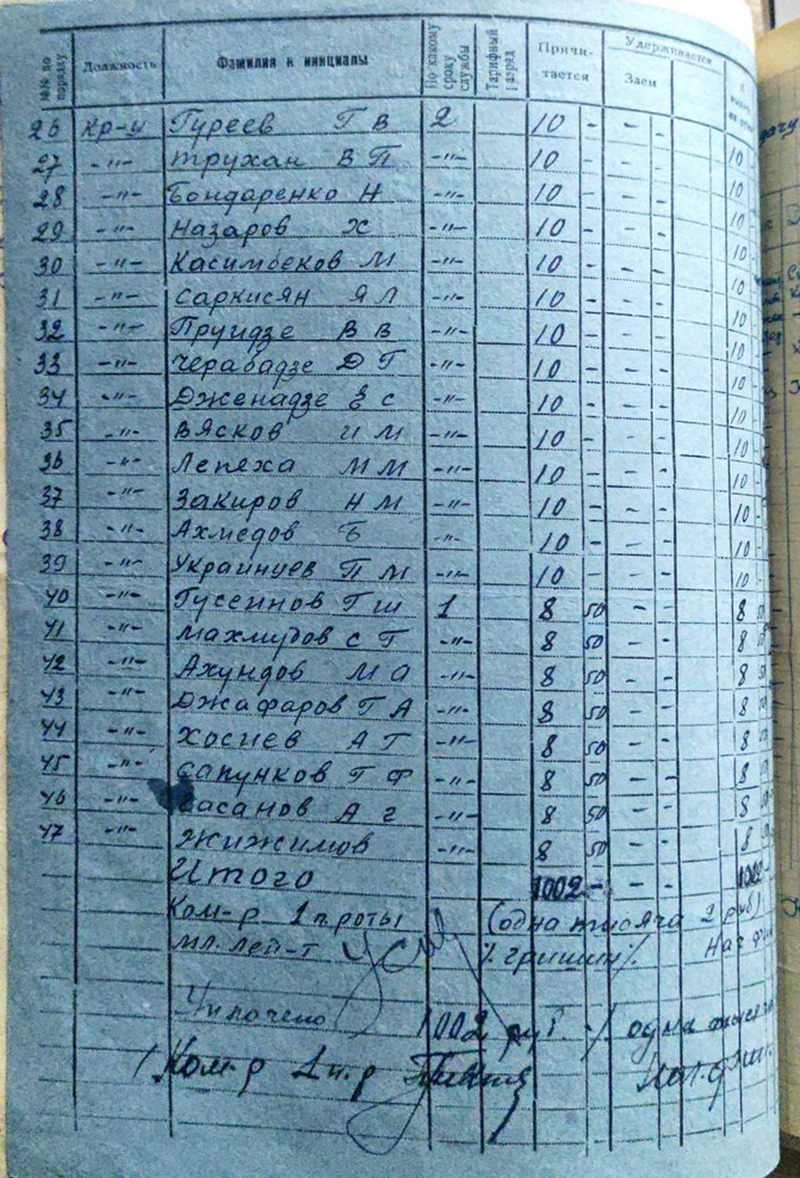 №№ по порядку Должность Фамилия и инициалы По какому сроку службы Тарифный разряд Причи-тается Удерживается Заем
26 Кр-ц Гуреев Г В 2 10 - - - 10
27 -"- Трухан В П -"- 10 - - - 10
28 -"- Бондаренко Н -"- 10 - - - 10
29 -"- Назаров Х -"- 10 - - - 10
30 -"- Касимбеков М -"- 10 - - - 10
31 -"- Саркисян Я Л -"- 10 - - - 10
32 -"- Пруидзе В В -"- 10 - - - 10
33 -"- Черабадзе Д Г -"- 10 - - - 10
34 -"- Дженадзе Е С -"- 10 - - - 10
35 -"- Вясков И М -"- 10 - - - 10
36 -"- Лепяха М М -"- 10 - - - 10
37 -"- Закиров Н М -"- 10 - - - 10
38 -"- Ахмедов Б -"- 10 - - - 10
39 -"- Украинцев П М -"- 10 - - - 10
40 -"- Гусеинов Г Ш 1 8 50 - - 8 50
41 -"- Махмудов С Г -"- 8 50 - - 8 50
42 -"- Ахундов М А -"- 8 50 - - 8 50
43 -"- Джафаров Г А -"- 8 50 - - 8 50
44 -"- Хосиев А Г -"- 8 50 - - 8 50
45 -"- Сапунков Г Ф -"- 8 50 - - 8 50
46 -"- Гасанов А Г -"- 8 50 - - 8 50
47 -"- Жижимов -"- 8 50 - - 8 50
Итого 1002 - - - 1002
Ком-р 1 п роты (одна тысяча 2 руб)
мл. лей-т /. гришин /. Нач фин
Уплочено 1002 руб. /. одна тысяч
Ком-р 1 п. р Нач. фин.